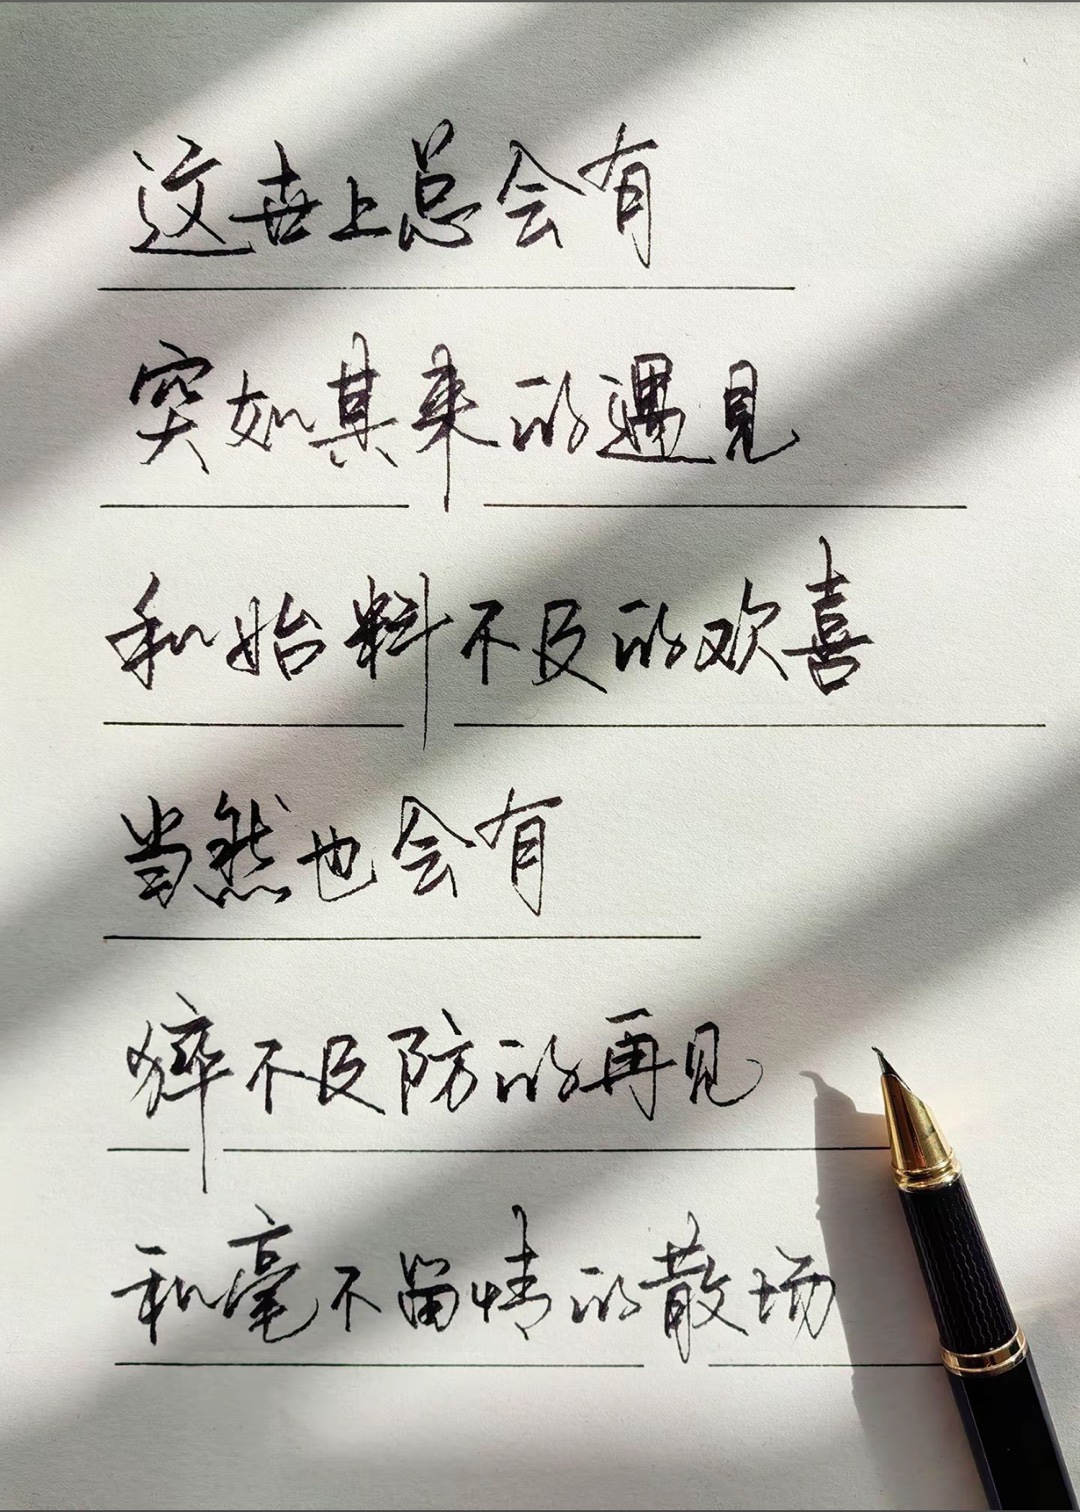 这世上总会有
突如其来的遇见
和始料不及的欢喜
当然也会有
猝不及防的再见
和毫不留情的散场